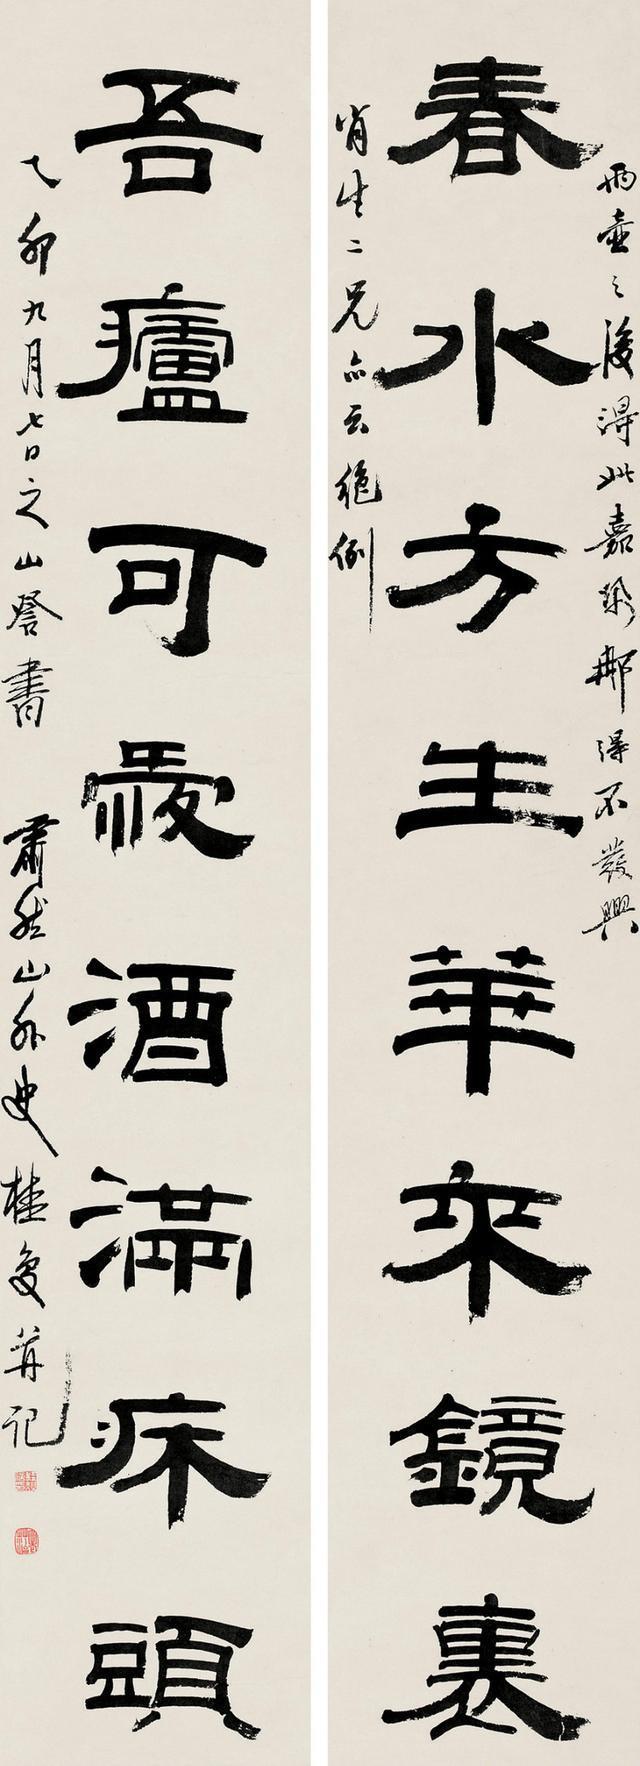 兩壺之後得此嘉那得不發興
春水方生華來鏡裏
肖生二兄亦云絕倒
吾廬可愛酒滿床頭
乙卯九月七日之山詧書 肅然山外史桂馥并記